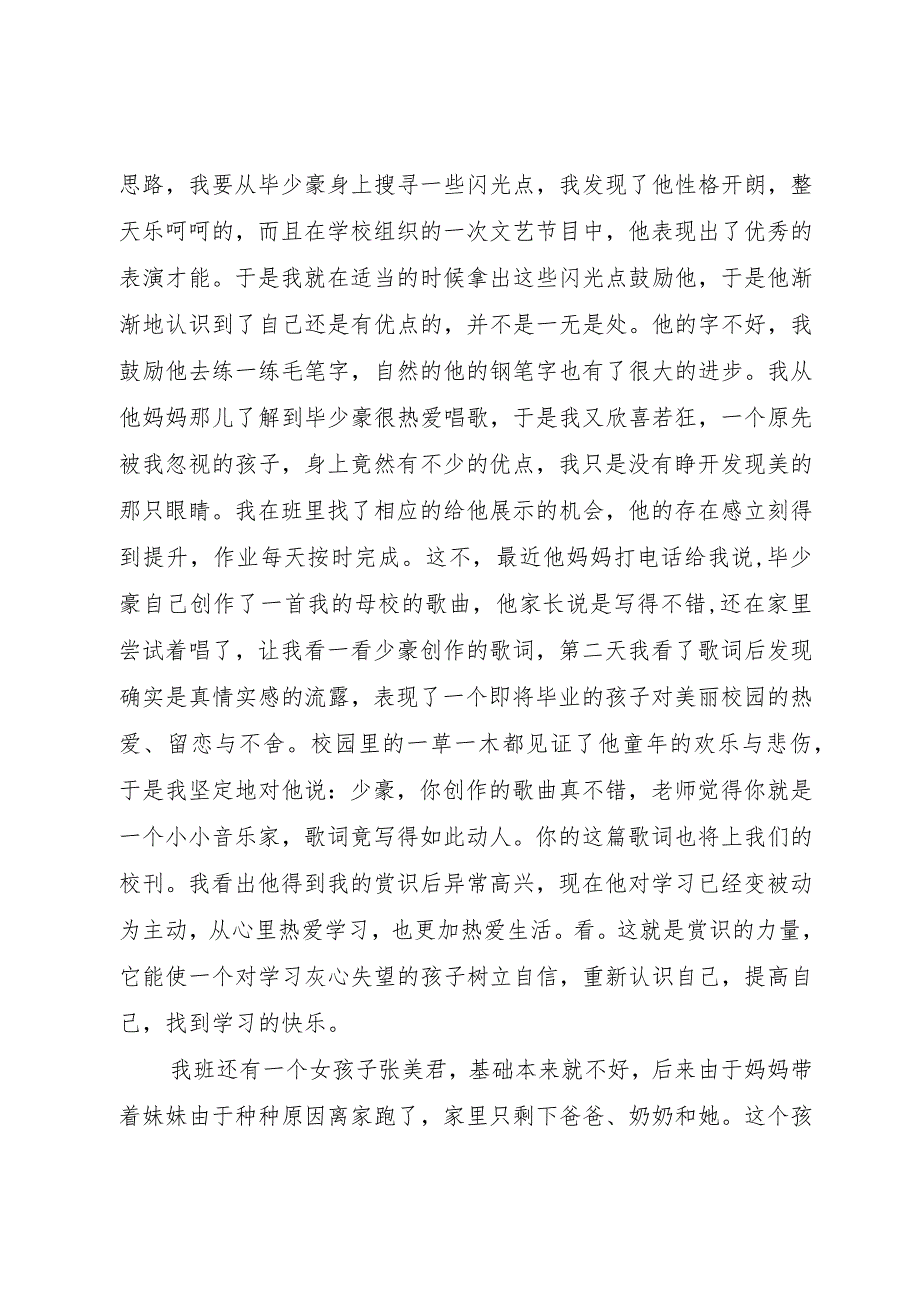 思路，我要从毕少豪身上搜寻一些闪光点，我发现了他性格开朗，整
天乐呵呵的，而且在学校组织的一次文艺节目中，他表现出了优秀的
表演才能。于是我就在适当的时候拿出这些闪光点鼓励他，于是他渐
渐地认识到了自己还是有优点的，并不是一无是处。他的字不好，我
鼓励他去练一练毛笔字，自然的他的钢笔字也有了很大的进步。我从
他妈妈那儿了解到毕少豪很热爱唱歌，于是我又欣喜若狂，一个原先
被我忽视的孩子，身上竟然有不少的优点，我只是没有睁开发现美的
那只眼睛。我在班里找了相应的给他展示的机会，他的存在感立刻得
到提升，作业每天按时完成。这不，最近他妈妈打电话给我说,毕少
豪自己创作了一首我的母校的歌曲，他家长说是写得不错,还在家里
尝试着唱了，让我看一看少豪创作的歌词，第二天我看了歌词后发现
确实是真情实感的流露，表现了一个即将毕业的孩子对美丽校园的热
爱、留恋与不舍。校园里的一草一木都见证了他童年的欢乐与悲伤，
于是我坚定地对他说：少豪，你创作的歌曲真不错，老师觉得你就是
一个小小音乐家，歌词竟写得如此动人。你的这篇歌词也将上我们的
校刊。我看出他得到我的赏识后异常高兴，现在他对学习已经变被动
为主动，从心里热爱学习，也更加热爱生活。看。这就是赏识的力量，
它能使一个对学习灰心失望的孩子树立自信，重新认识自己，提高自
己，找到学习的快乐。
我班还有一个女孩子张美君，基础本来就不好，后来由于妈妈带
着妹妹由于种种原因离家跑了，家里只剩下爸爸、奶奶和她。这个孩